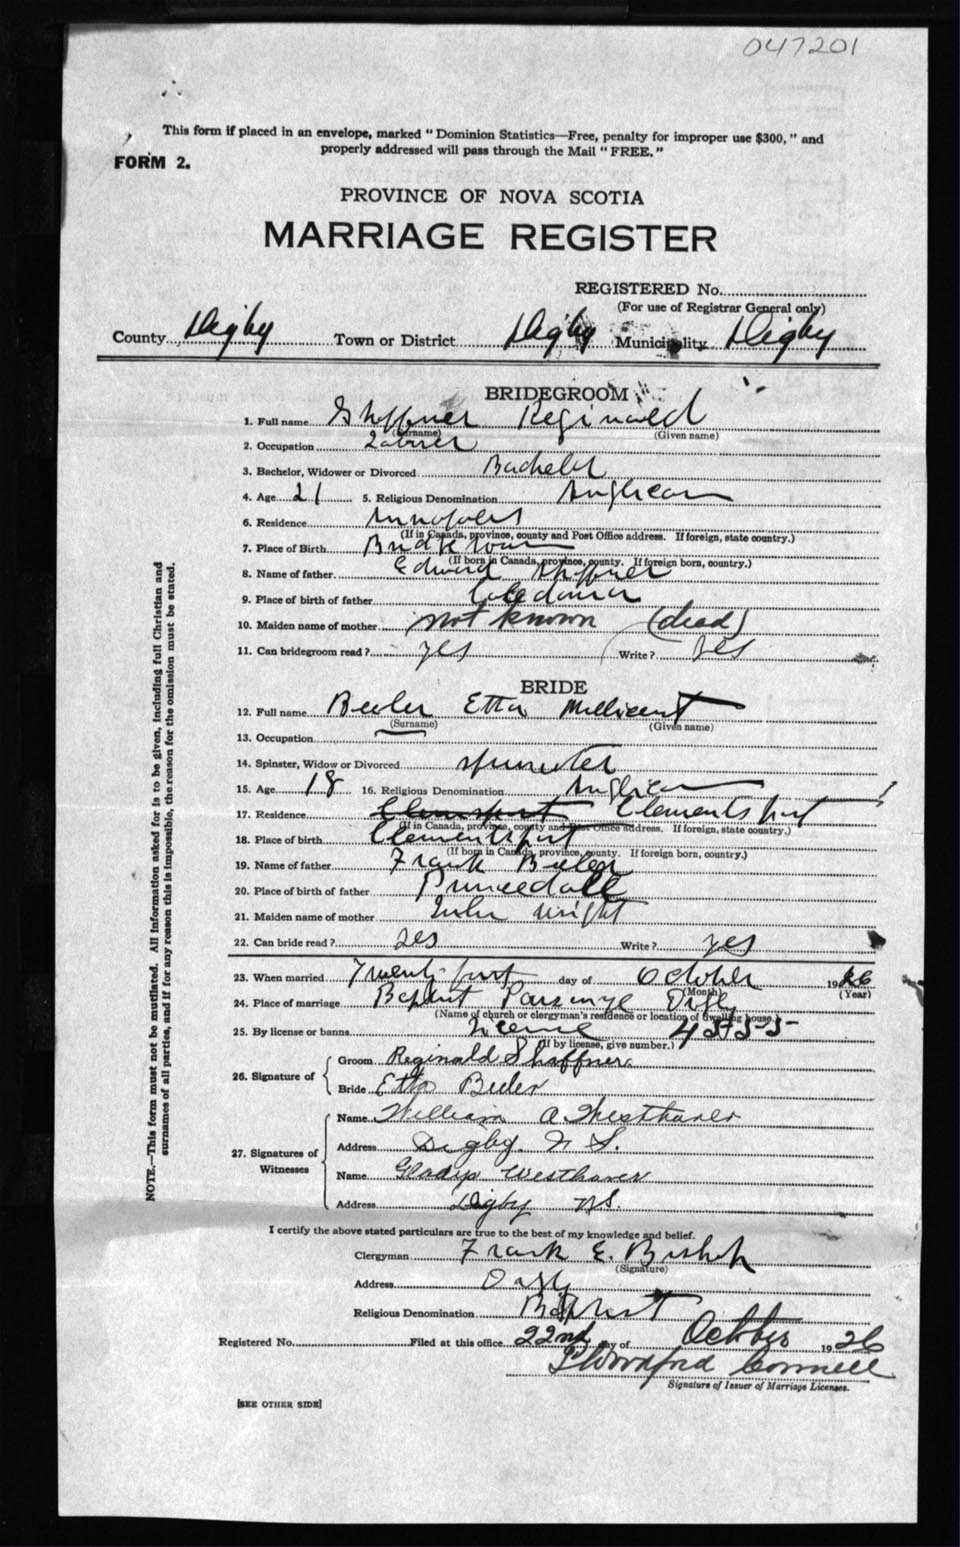 047201
This form if placed in an envelope, marked "Dominion Statistics—Free, penalty for improper use $300," and
properly addressed will pass through the Mail "FREE."
FORM 2.
PROVINCE OF NOVA SCOTIA
MARRIAGE REGISTER
REGISTERED No.
(For use of Registrar General only)
County Digby Town or District Digby Municipality Digby
BRIDEGROOM
1. Full name Shaffner Reginald
(Surname) (Given name)
2. Occupation Laborer
3. Bachelor, Widower or Divorced Bachelor
4. Age 21 5. Religious Denomination Anglican
6. Residence Annapolis
(If in Canada, province, county and Post Office address. If foreign, state country.)
7. Place of Birth Bridgetown
(If born in Canada, province, county. If foreign born, country.)
8. Name of father Edward Shaffner
9. Place of birth of father Caledonia
10. Maiden name of mother not known (dead)
11. Can bridegroom read? yes Write? yes
BRIDE
12. Full name Beeler Etta Millicent
(Surname) (Given name)
13. Occupation
14. Spinster, Widow or Divorced spinster
15. Age 18 16. Religious Denomination Anglican
17. Residence Clementsport
(If in Canada, province, county and Post Office address. If foreign, state country.)
18. Place of birth Clementsport
(If born in Canada, province, county. If foreign born, country.)
19. Name of father Frank Beeler
20. Place of birth of father Princedale
21. Maiden name of mother Wright
22. Can bride read? yes Write? yes
23. When married Twenty-first day of October 1926
(Month) (Year)
24. Place of marriage Baptist Parsonage Digby
(Name of church or clergyman's residence or location of dwelling house.)
25. By license or banns license 45355
(If by license, give number.)
26. Signature of
Groom Reginald Shaffner
Bride Etta Beeler
27. Signatures of Witnesses
Name William A Westhaver
Address Digby N S.
Name Gladys Westhaver
Address Digby NS.
I certify the above stated particulars are true to the best of my knowledge and belief.
Clergyman Frank E. Bishop
(Signature)
Address Digby
Religious Denomination Baptist
Registered No. Filed at this office 22nd day of October 1926
Signature of Issuer of Marriage Licenses.
[SEE OTHER SIDE]
NOTE.—This form must not be mutilated. All information asked for is to be given, including full Christian and
surnames of all parties, and if for any reason this is impossible, the reason for the omission must be stated.